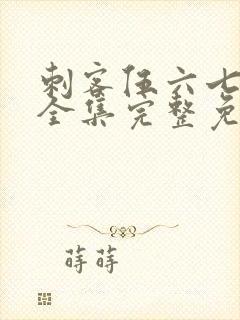 刺客伍六七
全集完整免
莳莳